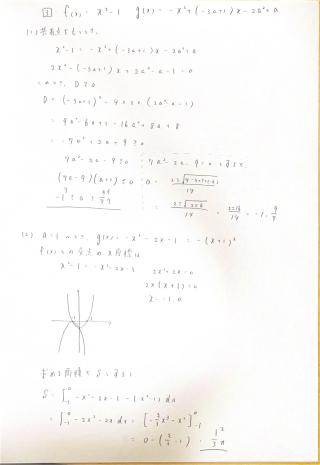 3 f(x) = x²-1 g(x) = -x²+(-3a+1)x-2a²+a
(1) 共有点をもつので、
x²-1 = -x²+(-3a+1)x-2a²+a
2x²-(-3a+1)x+2a²-a-1=0
D≧0
D=(-3a+1)²-4×2×(2a²-a-1)
= 9a²-6a+1-16a²+8a+8
= -7a²+2a+9≧0
7a²-2a-9 7a²-2a-9=0
(7a-9)(a+1)≦0 a=
14
-1≦a≦9/7
14 = -1, 9/7
(2) a=1 g(x)=-x²-2x-1=-(x+1)²
f(x)との交点のx座標は
x²-1=-x²-2x-1 2x²+2x=0
2x(x+1)=0
x=-1,0
求める面積をSとすると
S=∫₋₁⁰ -x²-2x-1-(x²-1)dx
=∫₋₁⁰ -2x²-2x dx=[-2/3x³-x²]₋₁⁰
= 0-(2/3-1)